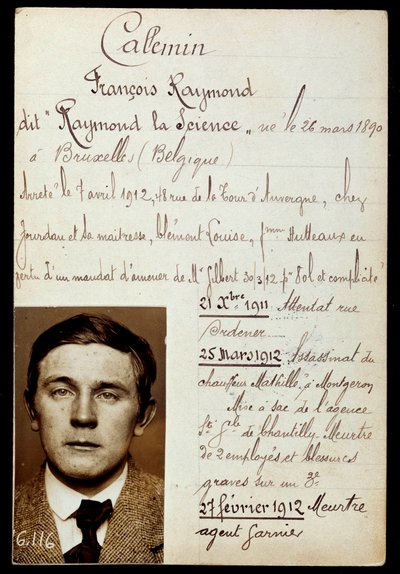 Callemin
François Raymond
dit "Raymond la Science" né le 26 mars 1890
à Bruxelles (Belgique)
Arrêté le 7 avril 1912, 48 rue de la Tour d'Auvergne, chez
Jourdan et sa maitresse, Clément Louise, fmm Hutteaux en
vertu d'un mandat d'amener de Mr Gilbert 30/3/12 pr Vol et complicité
21 Xbre 1911 Attentat rue
Ordener
25 Mars 1912 Assassinat du
chauffeur Mathillé, à Montgeron
Mise à sac de l'agence
Sté Gle de Chantilly. Meurtre
de 2 employés et blessures
graves sur un 3e
27 février 1912 Meurtre
agent Garnier
G.116